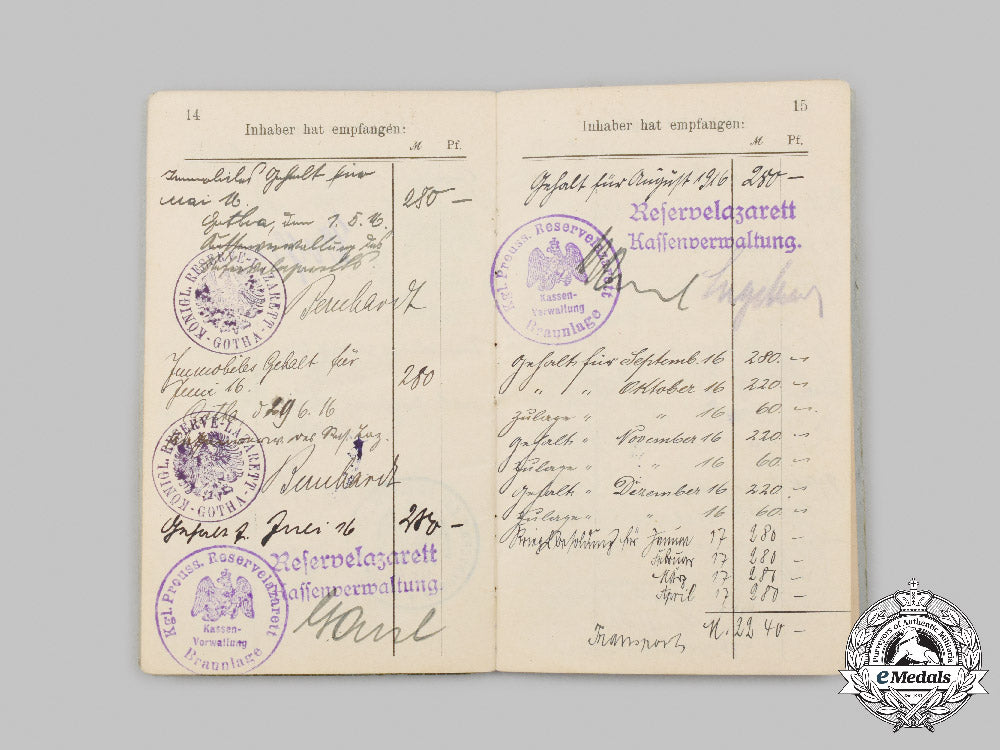 14
Inhaber hat empfangen:
M Pf.
Immobiles Gehalt für
Mai 16. 280 —
Gotha, den 1. 5. 16.
Kassenverwaltung des
KÖNIGL. RESERVE-LAZARETT - GOTHA -
Bernhardt
Immobiles Gehalt für
Juni 16. 280
Gotha d 29 6. 16
des Res. Laz.
KÖNIGL. RESERVE-LAZARETT - GOTHA -
Bernhardt
Gehalt f. Juli 16 280 —
Reservelazarett
Kassenverwaltung.
Kgl. Preuss. Reservelazarett
Kassen-
Verwaltung
Braunlage
15
Inhaber hat empfangen:
M Pf.
Gehalt für August 1916 280 —
Reservelazarett
Kassenverwaltung.
Kgl. Preuss. Reservelazarett
Kassen-
Verwaltung
Braunlage
Gehalt für Septemb. 16 280. —
" " Oktober 16 220 —
Zulage " " 16 60. —
Gehalt " November 16 220 —
Zulage " " 16 60 —
Gehalt " Dezember 16 220 —
Zulage " " 16 60 —
Kriegsbesoldung für Januar 17 280 —
Februar 17 280 —
März 17 280 —
April 17 280 —
Transport M. 2240 —
Purveyors of Authentic Militaria
eMedals